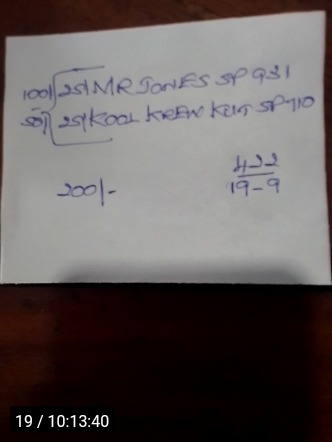 100/ 25/ MR JONES SP 931
50/ 25/ KOOL KREW KUT SP 710
200/-
422
19-9
19 / 10:13:40